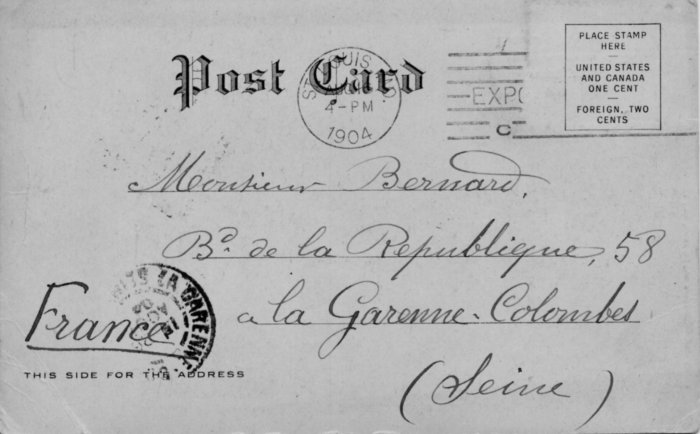 Post Card
ST. LOUIS, MO.
4-PM
1904
EXPO
PLACE STAMP
HERE
UNITED STATES
AND CANADA
ONE CENT
FOREIGN, TWO
CENTS
Monsieur Bernard,
Bd. de la Republique, 58
a la Garenne-Colombes
(Seine)
France
LA GARENNE
THIS SIDE FOR THE ADDRESS